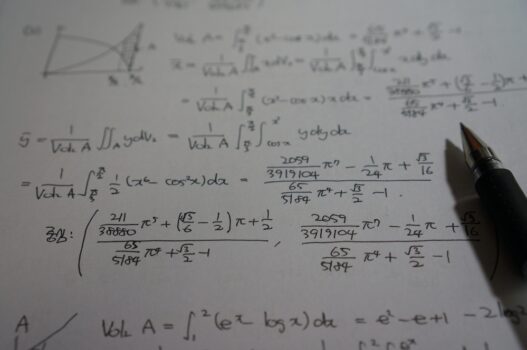 Vol₂ A = ∫_{π/3}^{π/2} (x³ - cos x) dx = 65/5184 π⁴ + √3/2 - 1
x̄ = 1/(Vol₂ A) ∬_A x dV₂ = 1/(Vol₂ A) ∫_{π/3}^{π/2} ∫_{cos x}^{x³} x dy dx
= 1/(Vol₂ A) ∫_{π/3}^{π/2} (x³ - cos x) x dx = (211/38880 π⁵ + (√3/6 - 1/2) π +)/(65/5184 π⁴ + √3/2 - 1)
ȳ = 1/(Vol₂ A) ∬_A y dV₂ = 1/(Vol₂ A) ∫_{π/3}^{π/2} ∫_{cos x}^{x³} y dy dx
= 1/(Vol₂ A) ∫_{π/3}^{π/2} 1/2 (x⁶ - cos² x) dx = (2059/3919104 π⁷ - 1/24 π + √3/16)/(65/5184 π⁴ + √3/2 - 1)
중심: ((211/38880 π⁵ + (√3/6 - 1/2) π + 1/2)/(65/5184 π⁴ + √3/2 - 1), (2059/3919104 π⁷ - 1/24 π + √3/16)/(65/5184 π⁴ + √3/2 - 1))
A
Vol₂ A = ∫₁² (eˣ - log x) dx = e² - e + 1 - 2 log